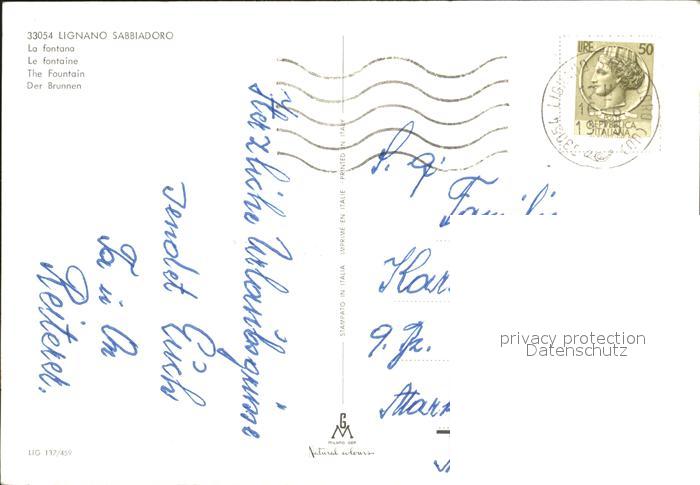 33054 LIGNANO SABBIADORO
La fontana
Le fontaine
The Fountain
Der Brunnen
LIRE 50
REPUBBLICA
ITALIANA
Herzliche Urlaubsgrüsse
sendet Euch
Reiterer.
STAMPATO IN ITALIA IMPRIMÉ EN ITALIE PRINTED IN ITALY
S. g.
Familie
Kar
Mar
privacy protection
Datenschutz
GM
MILANO
Natural colours
LIG 137/459